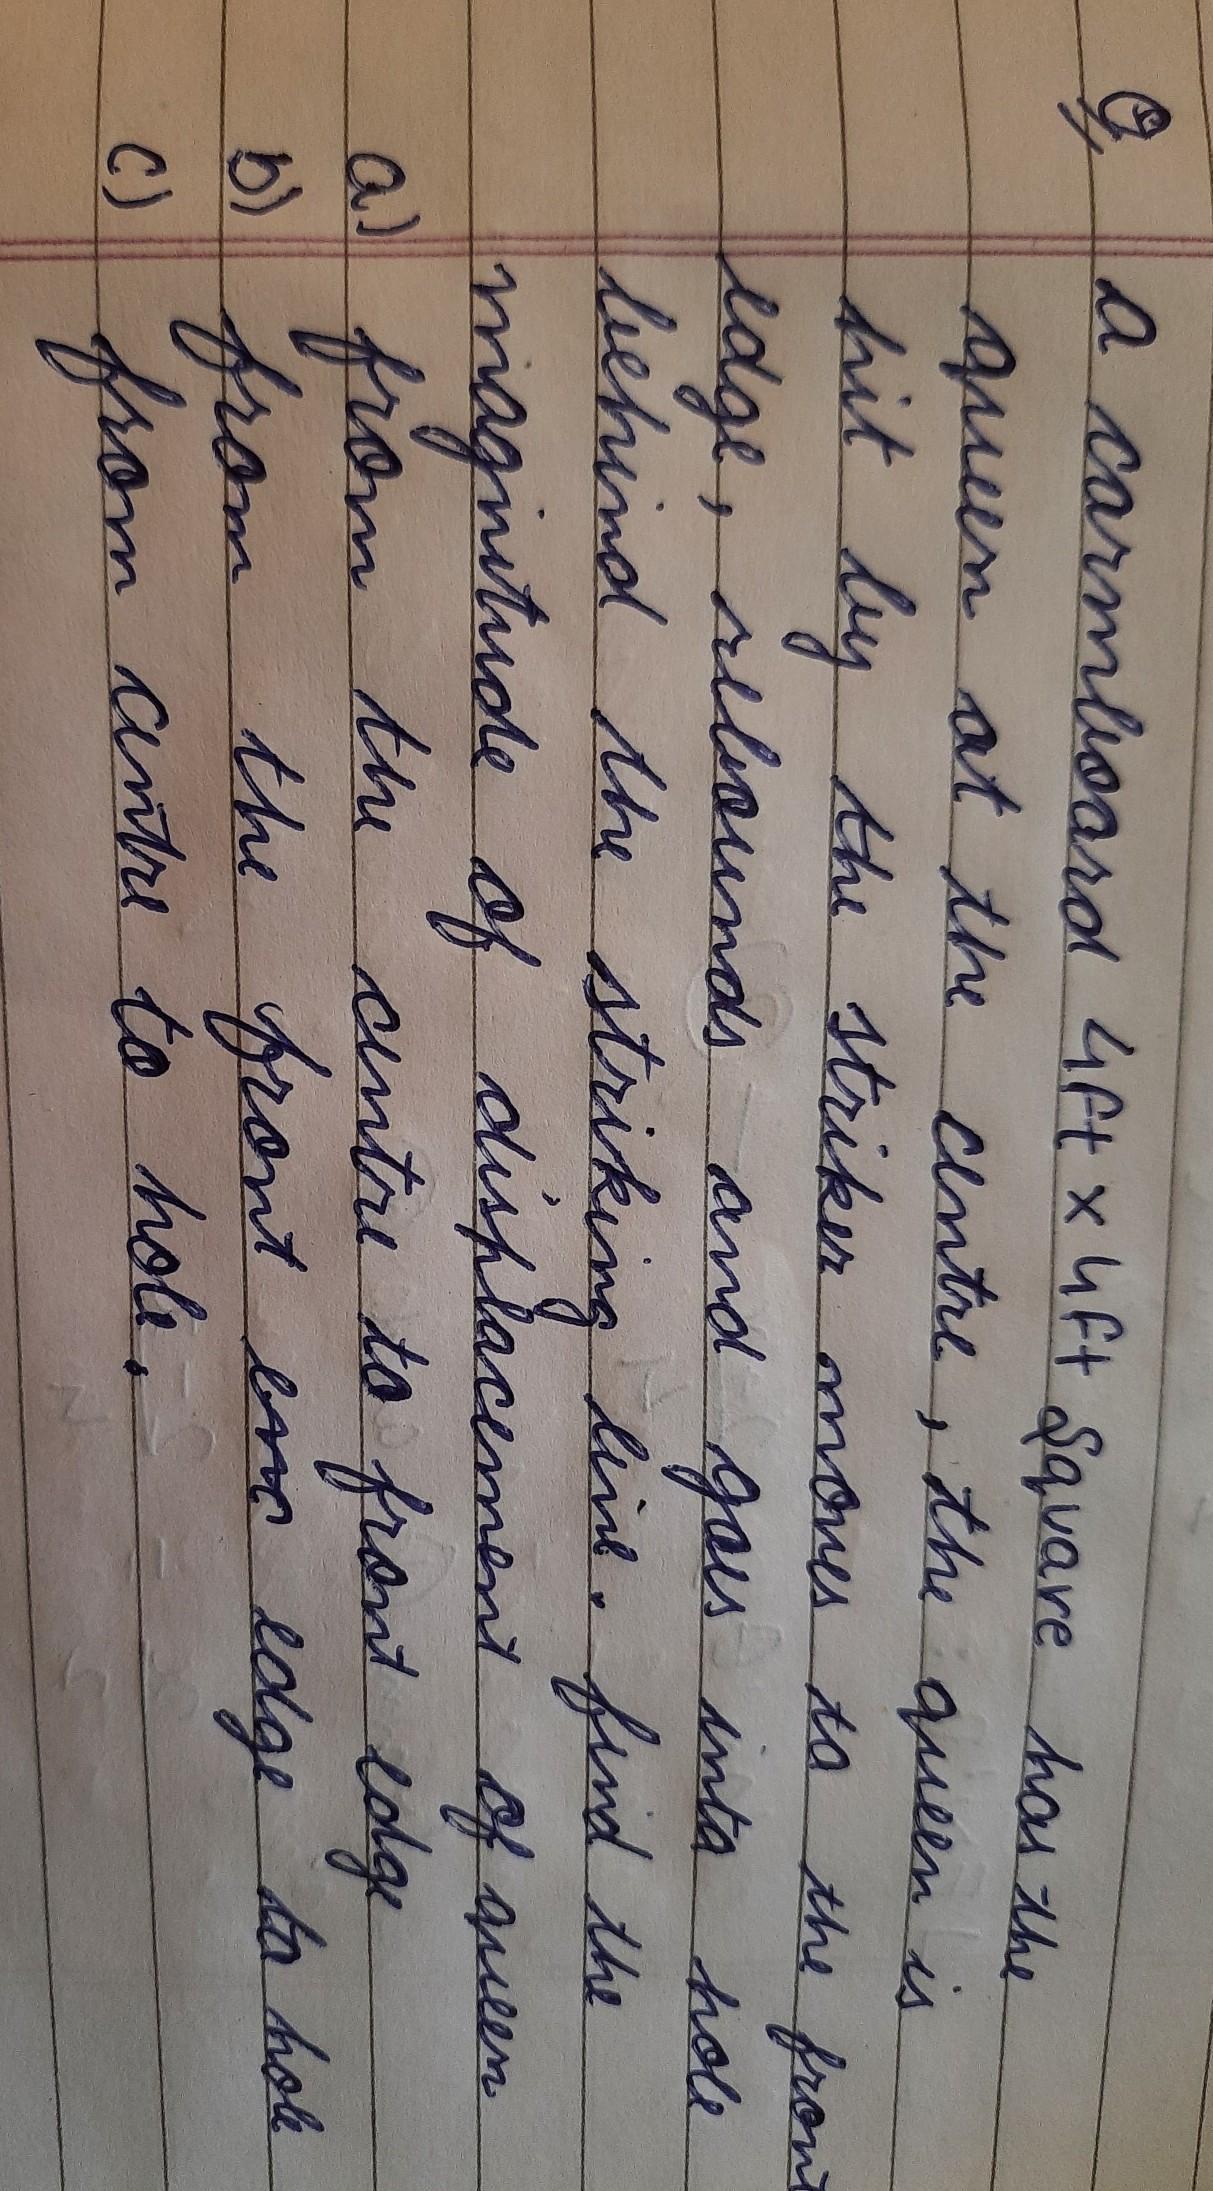 Q, a carmboard 4ft x 4ft Square has the
queen at the centre, the queen is
hit by the striker moves to the front
edge, rebounds and goes into hole
behind the striking line. find the
magnitude of displacement of queen
a) from the centre to front edge
b) from the front edge to hole
c) from centre to hole.